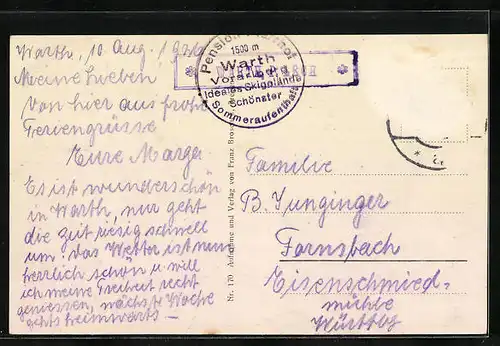 Warth, 10. Aug. 1926
Meine Lieben
Von hier aus frohe
Feriengrüsse
Eure Marga
Es ist wunderschön
in Warth, nur geht
die Zeit riesig schnell
um. Das Wetter ist nun
herrlich schön u. will
ich meine Freiheit recht
geniessen, nächste Woche
gehts heimwärts –
Pension
1500 m
Warth
Vorarlberg
Ideales Skigelände
Schönster
Sommeraufenthalt
Nr. 170 Aufnahme und Verlag von Franz
Familie
B. Junginger
Fornsbach
Eisenschmied-
mühle
Württbg